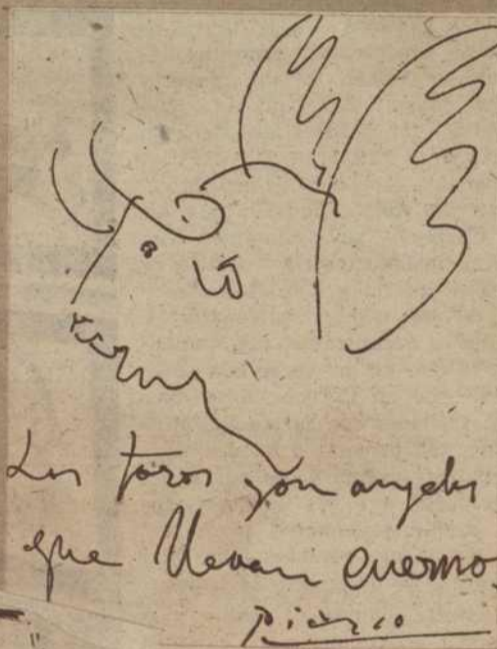 Los toros son angeles
que llevan cuernos
Picasso